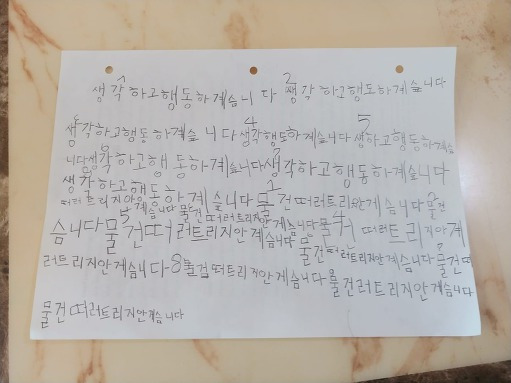 생각하고행동하계습니다 2 생각하고행동하계습니다
생각하고행동하계습니다 4 생각행도하계습니다 5 생하고행동하계습
니다생각하고행동하계습니다 7 생각하고행동하계습니다
생각하고행동하계습니다 1 물건떠러트리안게습니다 물건
떠러트리지안
게습니다 물건떠러트리지안
습니다 물건떠러트리지안게습니다 물건 4 떠러트리지안게
러트리지안게습니다 8 물겁떠러트리지안게습니다 물건러트리지안게습니다
물건떠러트리지안게습니다